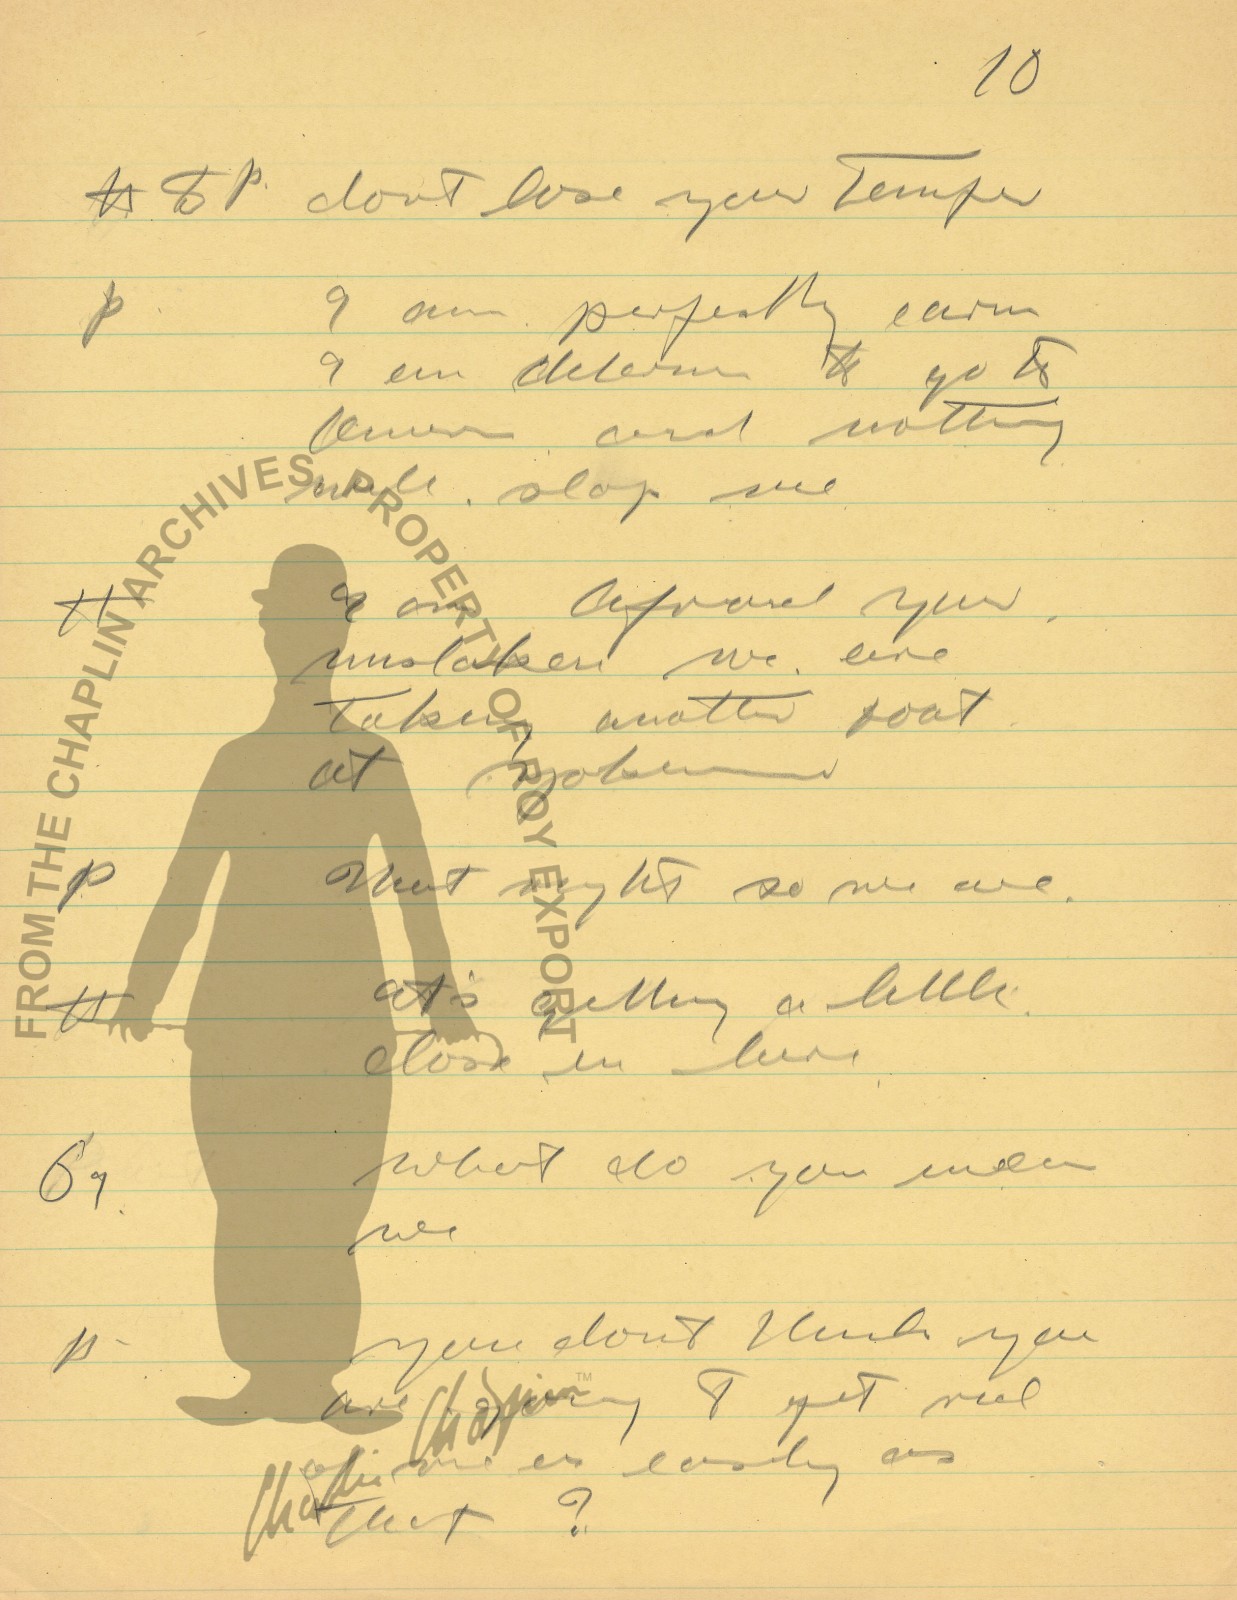 10
H to P. dont lose your Temper
P. I am perfectly calm
I am determ to go to
and nothing
will stop me
H I am afraid your
mistaken we are
taking another boat
at Yokohama
P That right so we are.
H at's getting a little
close in here
G?. what do you mean
we
P- you dont think you
are going T get rid
of me as easily as
that ?
FROM THE CHAPLIN ARCHIVES. PROPERTY OF ROY EXPORT
Charlie Chaplin™